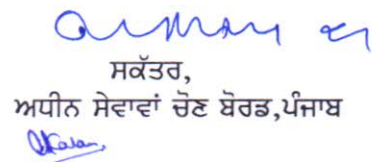 ਸਕੱਤਰ,
ਅਧੀਨ ਸੇਵਾਵਾਂ ਚੋਣ ਬੋਰਡ,ਪੰਜਾਬ